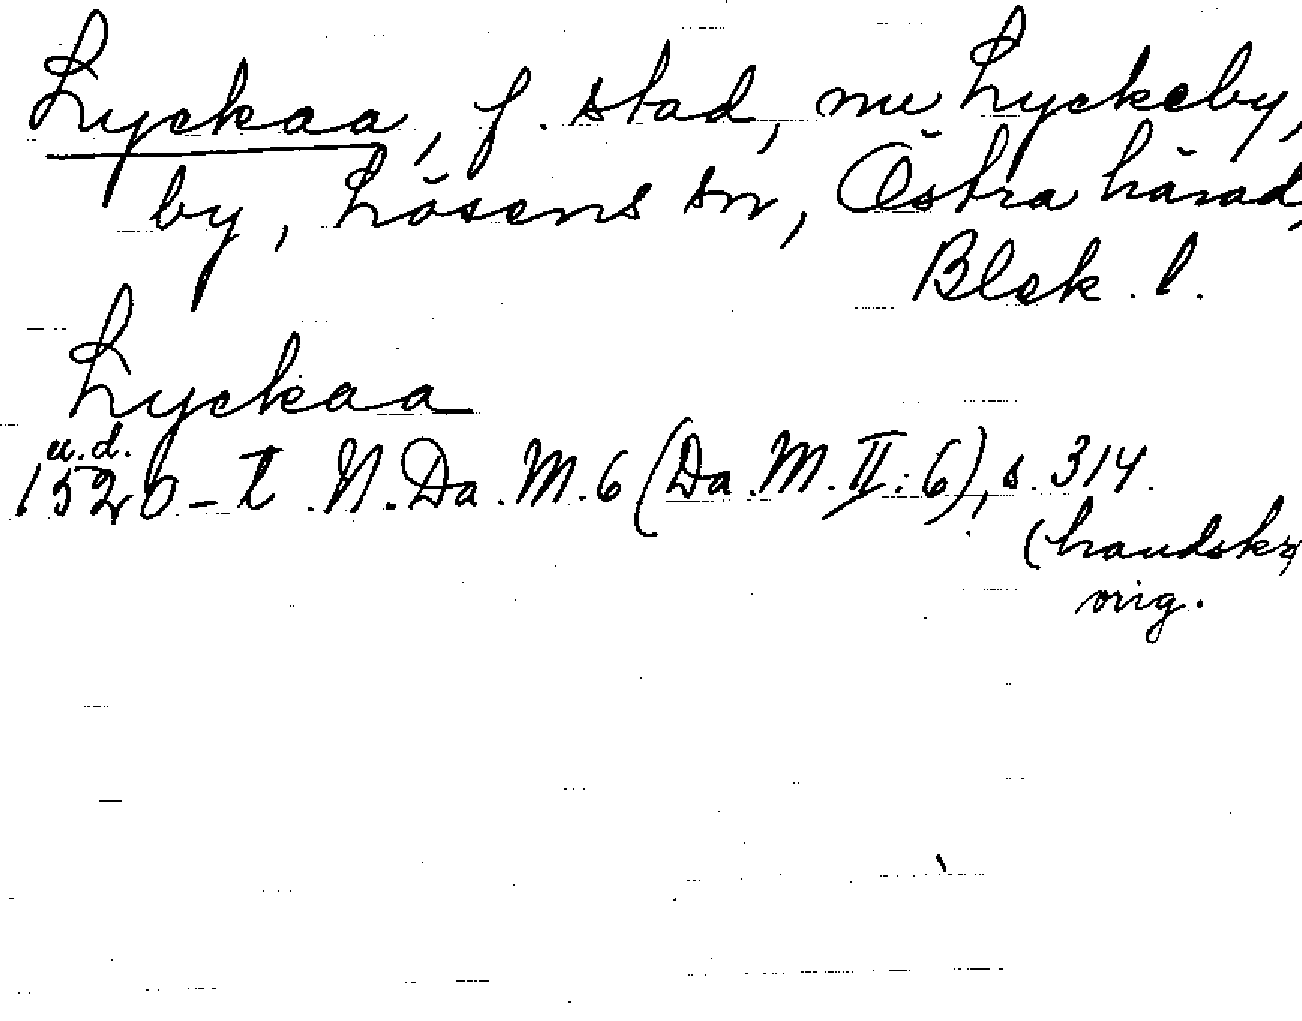 Lyckaa, f. stad, nu Lyckeby,
by, Lösens sn, Östra härad,
Blek. l.
Lyckaa
u.d.
1520-t N. Da. M. 6 (Da. M. II: 6), s. 314.
(handskr,
orig.